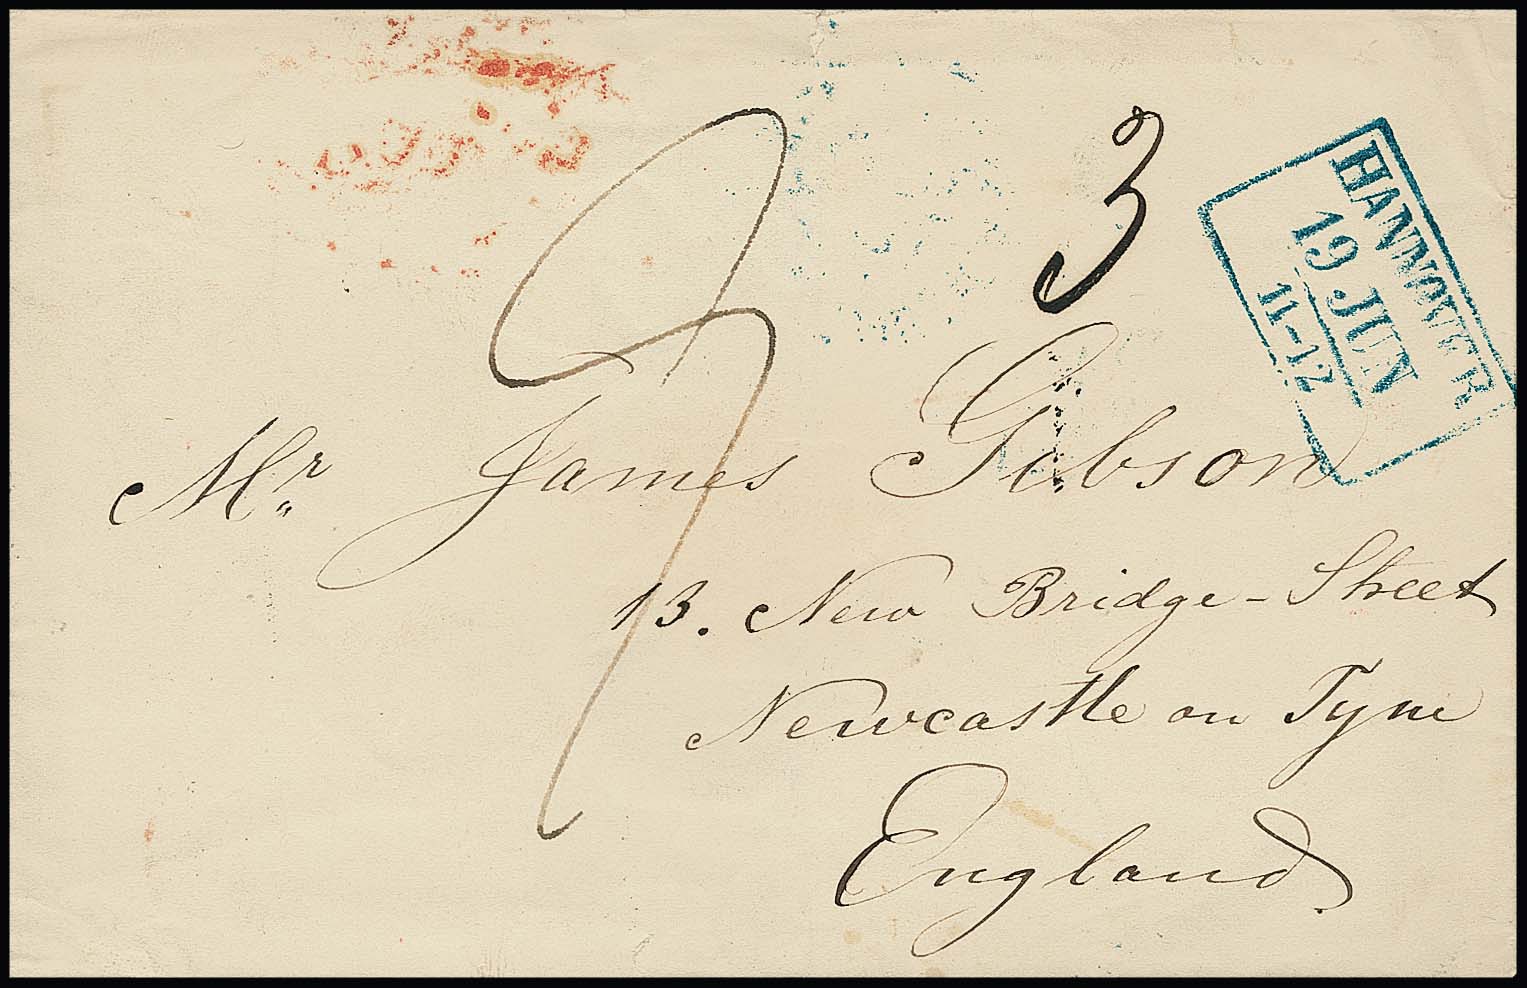 3
HANNOVER
19 JUN
11-12
Mr. James Gibson
13. New Bridge-Street
Newcastle on Tyne
England.